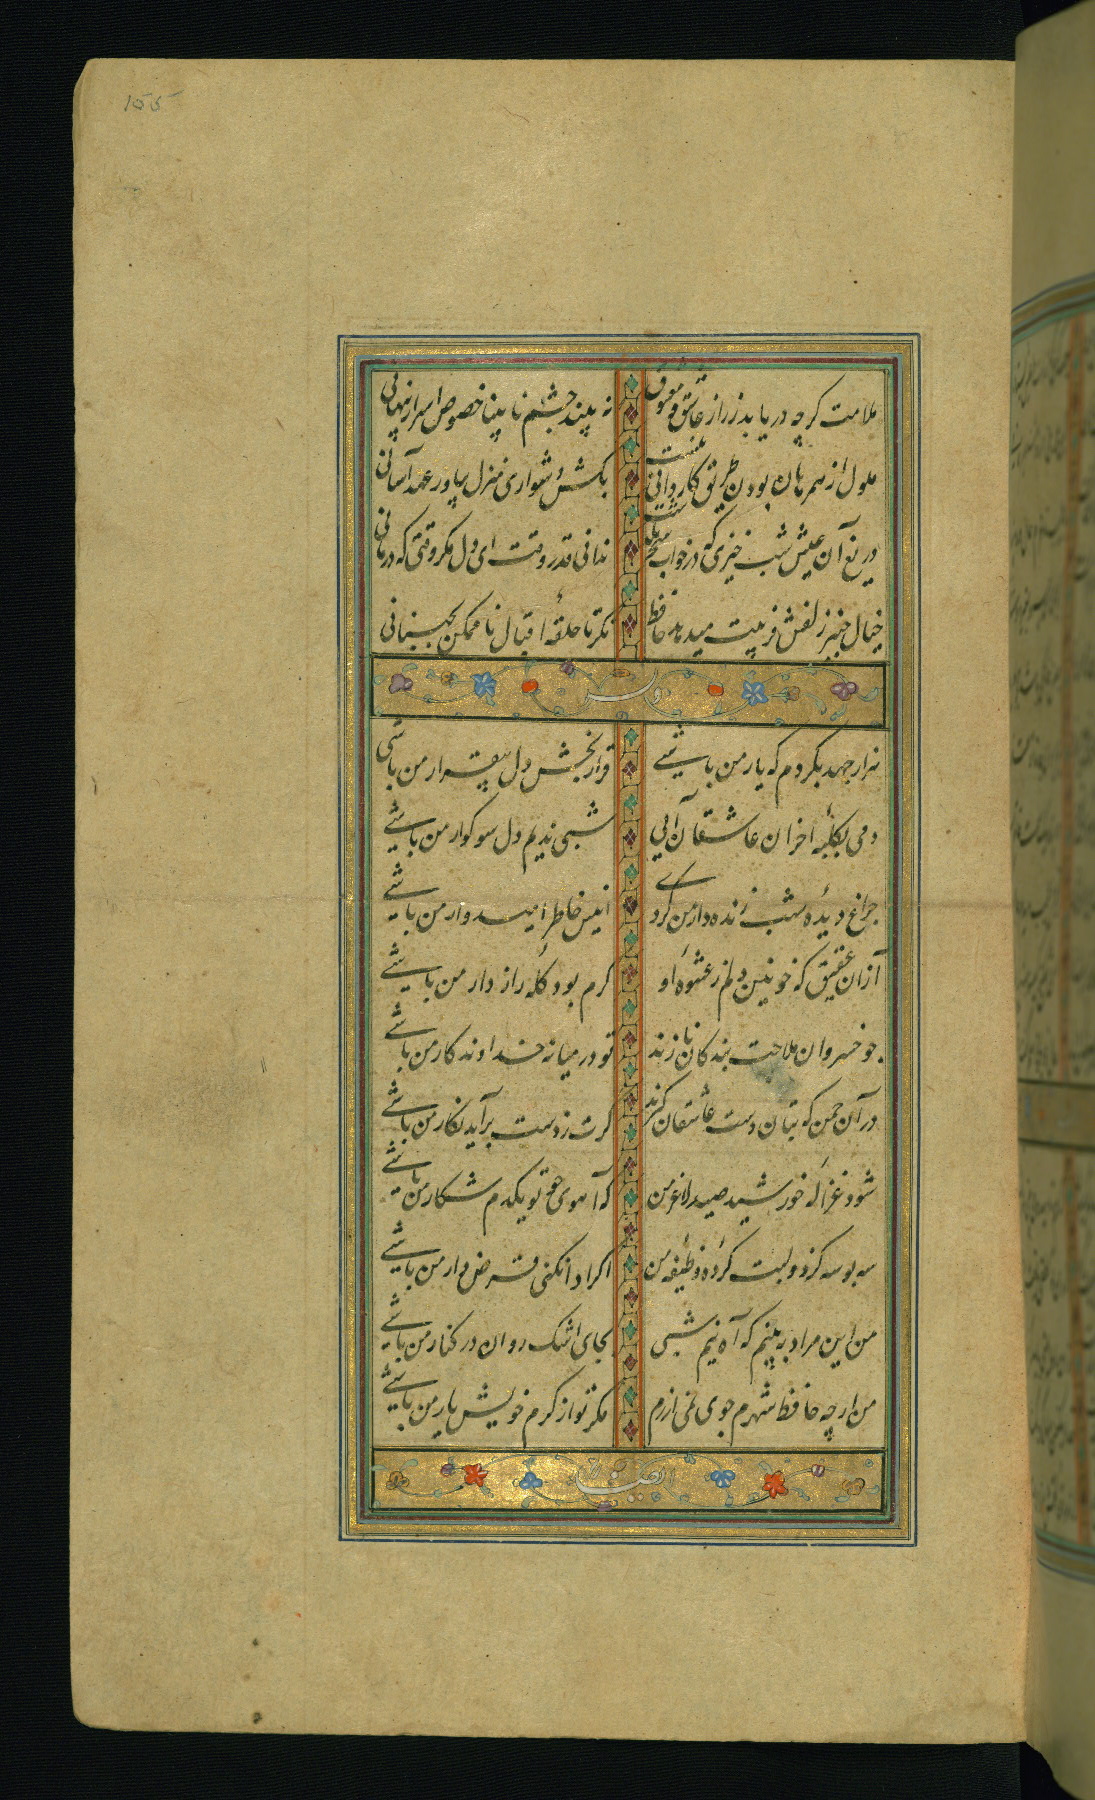 155
ملامت کرچه دریابد ز راز عاشق و معشوق
نه بیند چشم نابینا خصوص اسرار پنهانی
ملول از همرهان بودن طریق کاروانی نیست
بکش دشواری منزل بیاور عهد آسانی
دریغ آن عیش شب خیزی که در خواب سحر بگذشت
ندانی قدر وقت ای دل مکر وقتی که درمانی
خیال چنبر زلفش فریبت میدهد حافظ
نکر تا حلقه اقبال ناممکن نجنبانی
وله
هزار جهد بکردم که یار من باشی
قرار بخش دل بیقرار من باشی
دمی بکلبه احزان عاشقان آیی
شبی ندیم دل سوکوار من باشی
چراغ دیده شب زنده دار من کردی
انیس خاطر امیدوار من باشی
از آن عقیق که خونین دلم ز عشوه او
کرم بود کله رازدار من باشی
چو خسروان ملاحت ببندکان نازند
تو در میانه خداوندکار من باشی
در آن چمن که بتان دست عاشقان کیرند
کرت ز دست برآید نکار من باشی
شود غزاله خورشید صید لاغر من
که آهوی چو تو یکدم شکار من باشی
سه بوسه کز دو لبت کرده وظیفه من
اکر ادا نکنی قرض دار من باشی
من این مراد به بینم که آه نیم شبی
بجای اشک روان در کنار من باشی
من ارچه حافظ شهرم جوی نمی ارزم
مکر تو از کرم خویش یار من باشی